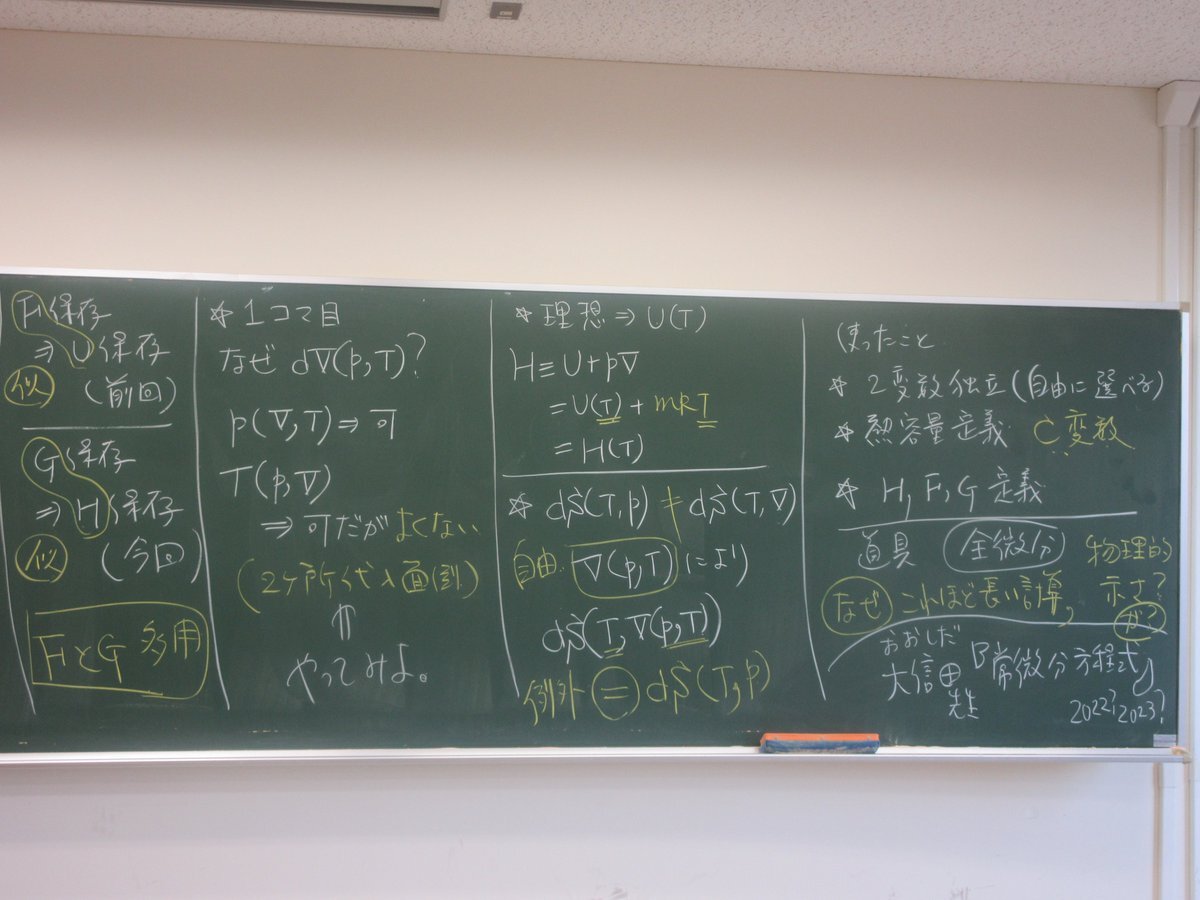 F保存
⇒U保存
似 (前回)
G保存
⇒H保存
似 (今回)
FとG 多用
☆1コマ目
なぜ dV(p,T)?
p(V,T)⇒可
T(p,V)
⇒可だが よくない
(2ヶ所代入面倒)
⇑
やってみよ。
☆理想⇒U(T)
H≡U+pV
=U(T)+mRT
=H(T)
☆ dS(T,p)≠dS(T,V)
自由 V(p,T)により
dS(T,V(p,T))
例外 = dS(T,p)
使ったこと
☆ 2変数独立(自由に選べる)
☆ 熱容量定義 C変数
☆ H,F,G 定義
道具 全微分 物理的
なぜ これほど長い計算, 示さ?
が?
おおしだ
大信田 『常微分方程式』
先生 2022?2023?